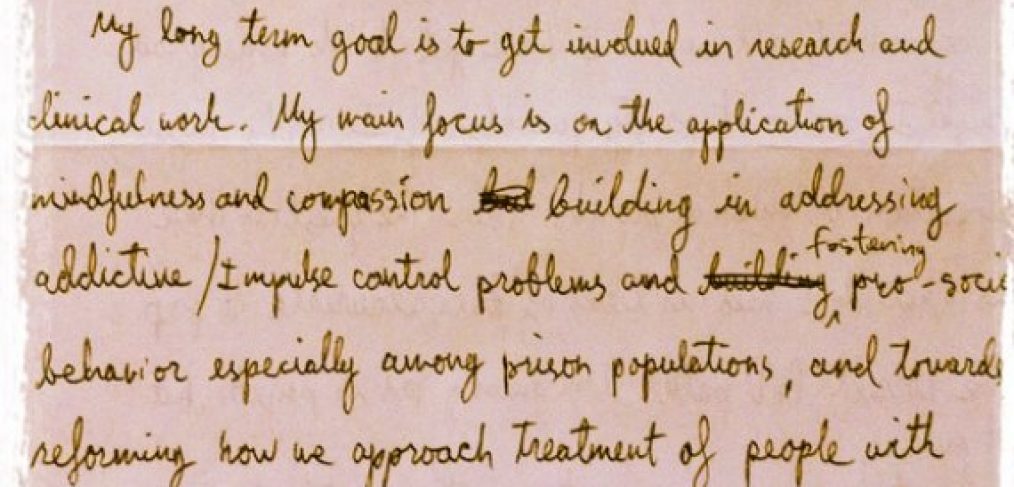 My long term goal is to get involved in research and
clinical work. My main focus is on the application of
mindfulness and compassion building in addressing
fostering
addictive / Impulse control problems and building pro-socia
behavior especially among prison populations, and towards
reforming how we approach treatment of people with